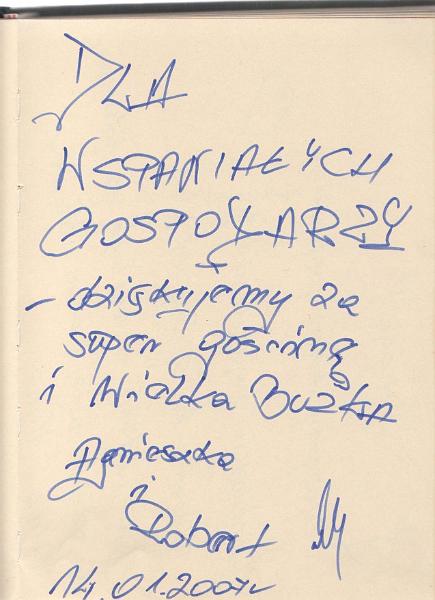 DLA
WSPANIAŁYCH
GOSPODARZY
- dziękujemy za
super gościnę
i Wielka BUŹKA
Agnieszka
i
Robert
14.01.2007r